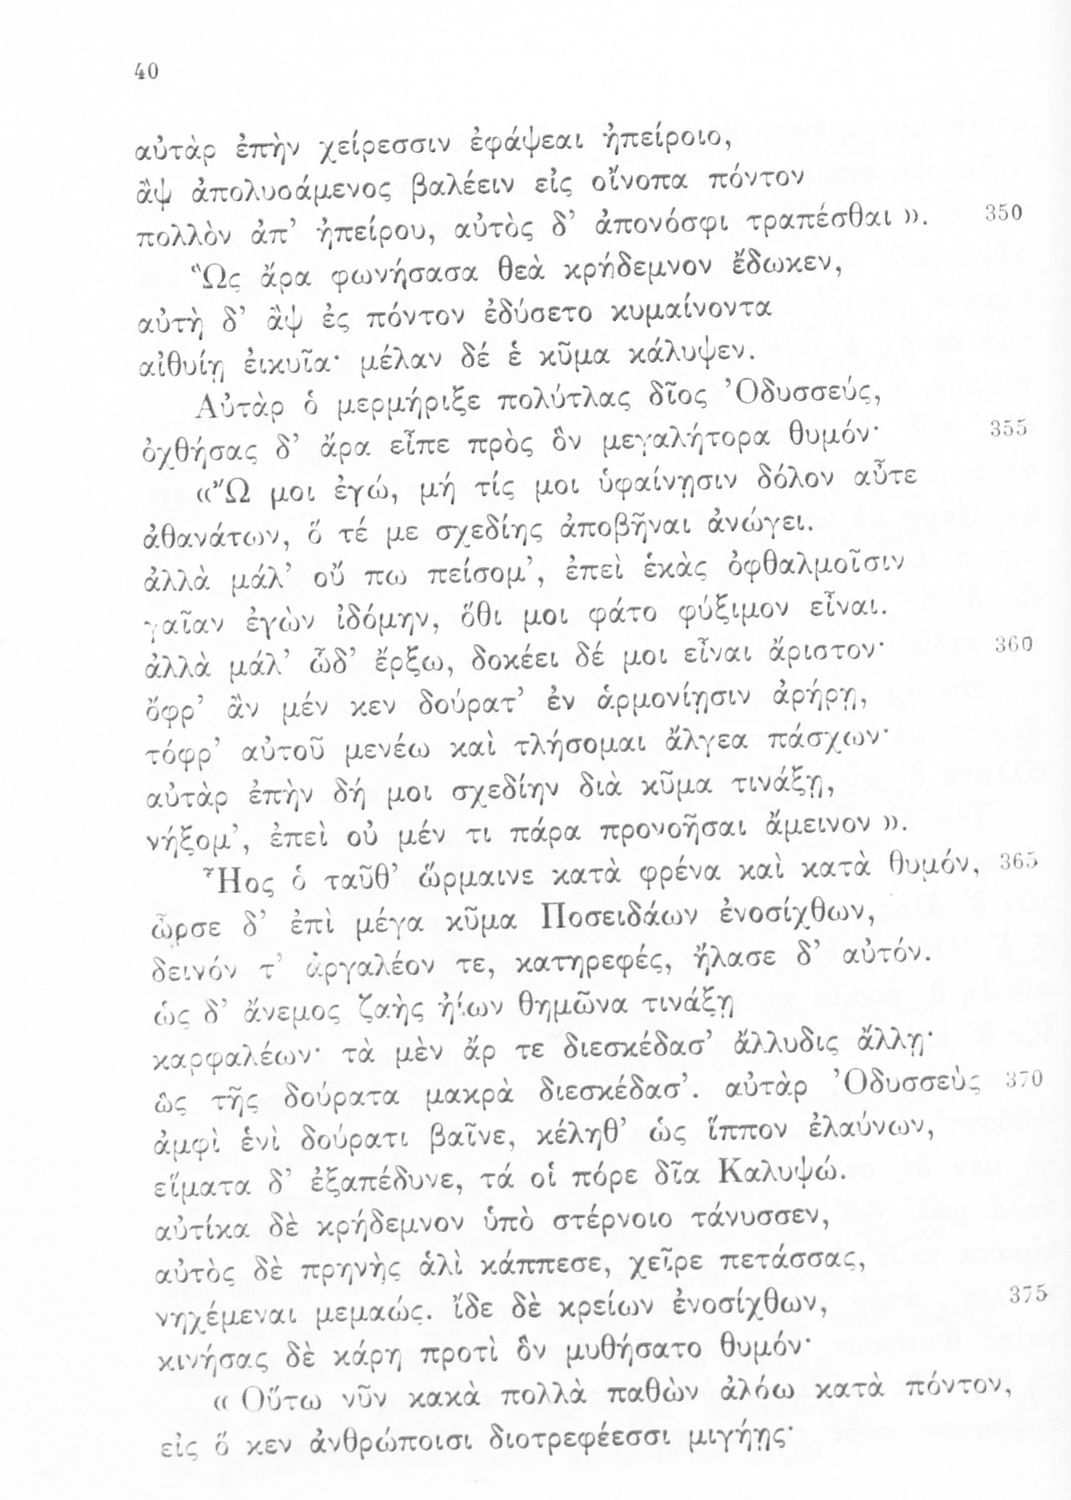 40
αὐτὰρ ἐπὴν χείρεσσιν ἐφάψεαι ἠπείροιο,
ἂψ ἀπολυσάμενος βαλέειν εἰς οἴνοπα πόντον
πολλὸν ἀπ’ ἠπείρου, αὐτὸς δ’ ἀπονόσφι τραπέσθαι ». 350
Ὣς ἄρα φωνήσασα θεὰ κρήδεμνον ἔδωκεν,
αὐτὴ δ’ ἂψ ἐς πόντον ἐδύσετο κυμαίνοντα
αἰθυίῃ ἐικυῖα· μέλαν δέ ἑ κῦμα κάλυψεν.
Αὐτὰρ ὁ μερμήριξε πολύτλας δῖος Ὀδυσσεύς,
ὀχθήσας δ’ ἄρα εἶπε πρὸς ὃν μεγαλήτορα θυμόν· 355
«Ὤ μοι ἐγώ, μή τίς μοι ὑφαίνῃσιν δόλον αὖτε
ἀθανάτων, ὅ τέ με σχεδίης ἀποβῆναι ἀνώγει.
ἀλλὰ μάλ’ οὔ πω πείσομ’, ἐπεὶ ἑκὰς ὀφθαλμοῖσιν
γαῖαν ἐγὼν ἰδόμην, ὅθι μοι φάτο φύξιμον εἶναι.
ἀλλὰ μάλ’ ὧδ’ ἔρξω, δοκέει δέ μοι εἶναι ἄριστον· 360
ὄφρ’ ἂν μέν κεν δούρατ’ ἐν ἁρμονίῃσιν ἀρήρῃ,
τόφρ’ αὐτοῦ μενέω καὶ τλήσομαι ἄλγεα πάσχων·
αὐτὰρ ἐπὴν δή μοι σχεδίην διὰ κῦμα τινάξῃ,
νήξομ’, ἐπεὶ οὐ μέν τι πάρα προνοῆσαι ἄμεινον ».
Ἧος ὁ ταῦθ’ ὥρμαινε κατὰ φρένα καὶ κατὰ θυμόν, 365
ὦρσε δ’ ἐπὶ μέγα κῦμα Ποσειδάων ἐνοσίχθων,
δεινόν τ’ ἀργαλέον τε, κατηρεφές, ἤλασε δ’ αὐτόν.
ὡς δ’ ἄνεμος ζαὴς ἠΐων θημῶνα τινάξῃ
καρφαλέων· τὰ μὲν ἄρ τε διεσκέδασ’ ἄλλυδις ἄλλῃ·
ὣς τῆς δούρατα μακρὰ διεσκέδασ’. αὐτὰρ Ὀδυσσεὺς 370
ἀμφὶ ἑνὶ δούρατι βαῖνε, κέληθ’ ὡς ἵππον ἐλαύνων,
εἵματα δ’ ἐξαπέδυνε, τά οἱ πόρε δῖα Καλυψώ.
αὐτίκα δὲ κρήδεμνον ὑπὸ στέρνοιο τάνυσσεν,
αὐτὸς δὲ πρηνὴς ἁλὶ κάππεσε, χεῖρε πετάσσας,
νηχέμεναι μεμαώς. ἴδε δὲ κρείων ἐνοσίχθων, 375
κινήσας δὲ κάρη προτὶ ὃν μυθήσατο θυμόν·
« Οὕτω νῦν κακὰ πολλὰ παθὼν ἀλόω κατὰ πόντον,
εἰς ὅ κεν ἀνθρώποισι διοτρεφέεσσι μιγήῃς·